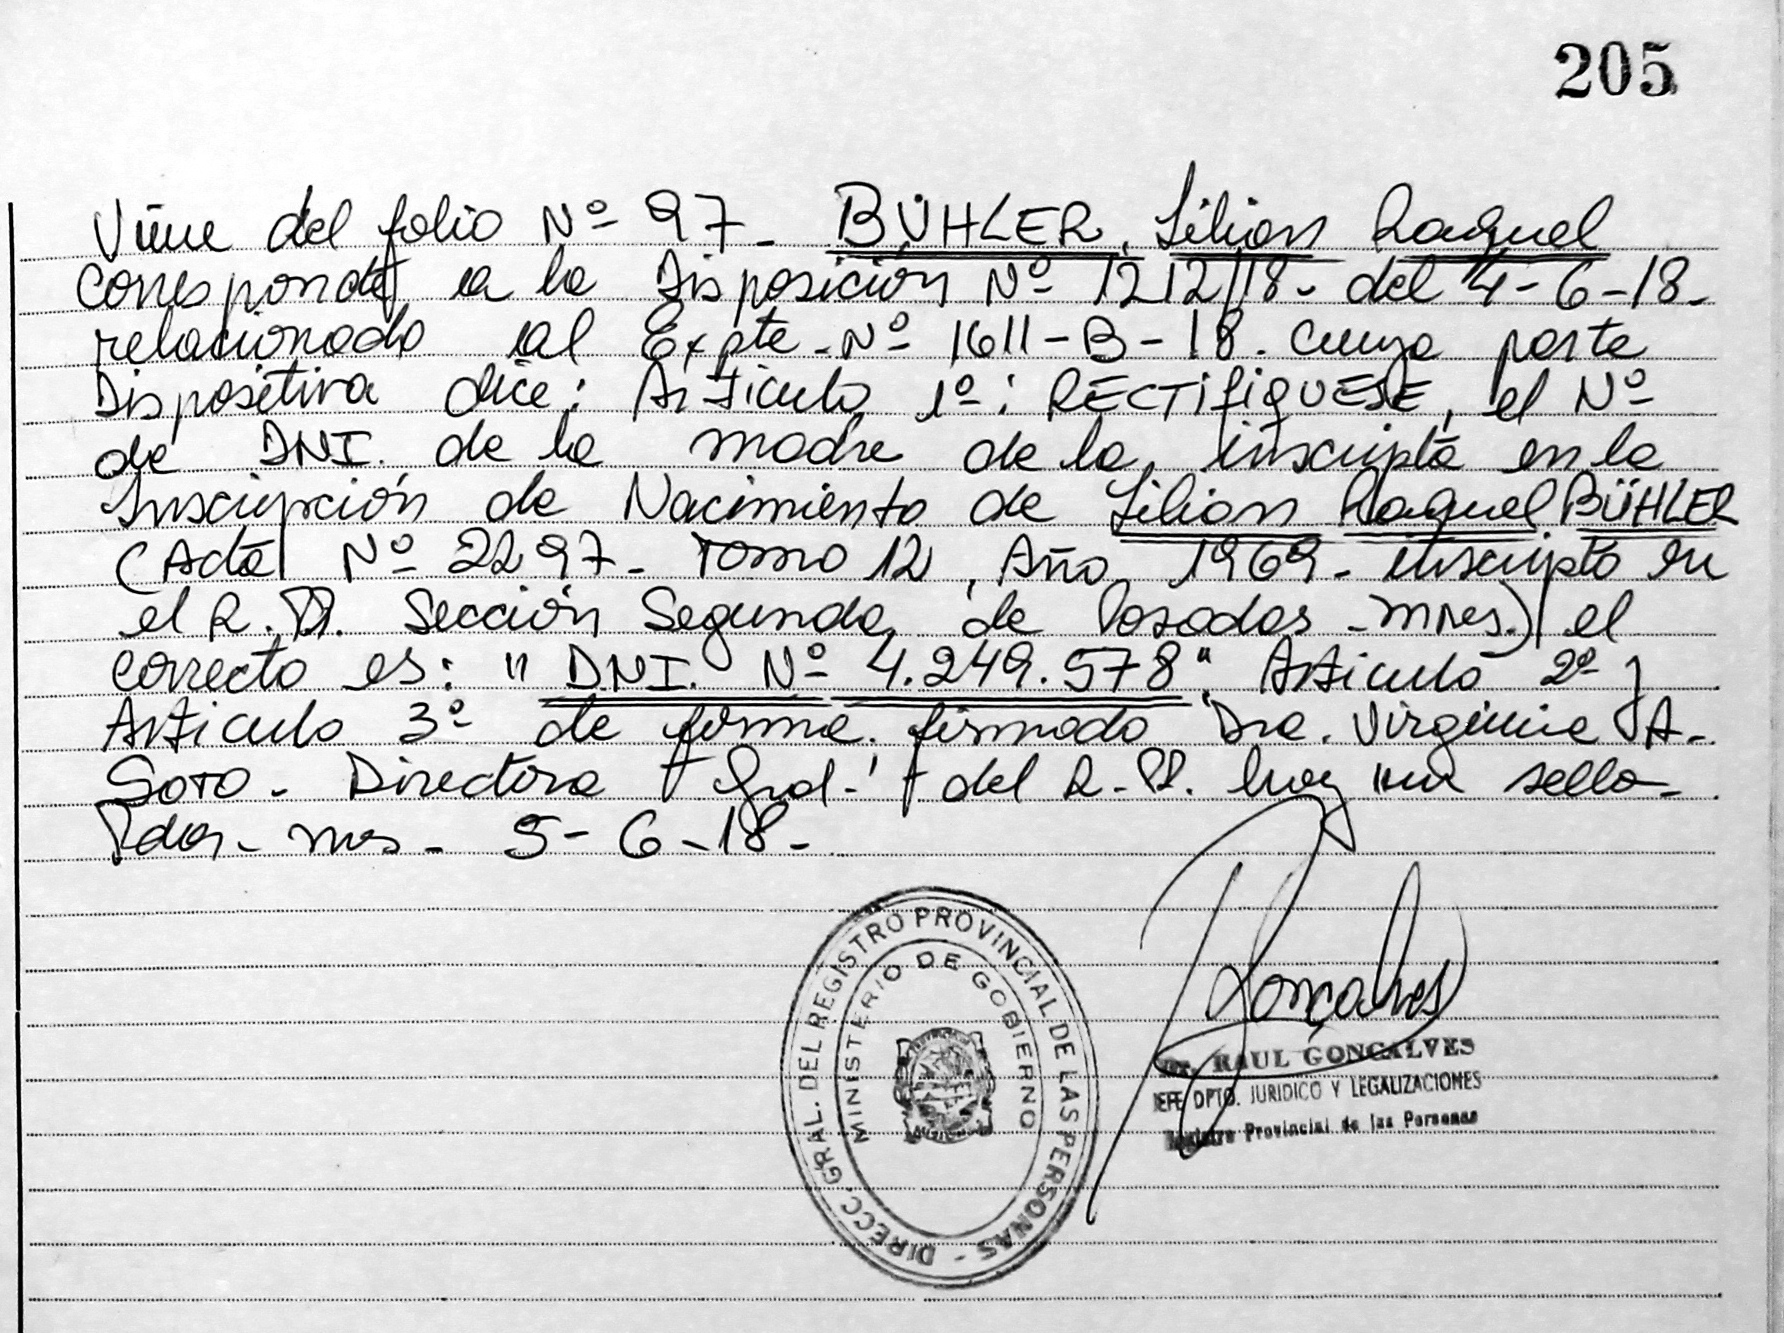 205
Viene del folio Nº 97- BÜHLER, Lilian Raquel
Corresponde a la Disposición Nº 1212/18- del 4-6-18-
relacionado al Expte-Nº 1611-B-18. cuya parte
Dispositiva dice: Articulo 1º: RECTIFIQUESE, el Nº
de DNI. de la madre de la inscripta en la
Inscripción de Nacimiento de Lilian Raquel BÜHLER
(Acta Nº 2297- Tomo 12, Año 1969- inscripto en
el R.PP. Sección Segunda de Posadas-Mnes.) el
correcto es: "DNI. Nº 4.249.578". Articulo 2º y
Articulo 3º de forma. firmado Dra. Virginia A-
Soto- Directora Gral.- del R.PP. hay un sello-
Pdas- mns- 5-6-18-
DIRECC. GRAL. DEL REGISTRO PROVINCIAL DE LAS PERSONAS -
MINISTERIO DE GOBIERNO
Goncalves
RAUL GONCALVES
JEFE DPTO. JURIDICO Y LEGALIZACIONES
Registro Provincial de las Personas